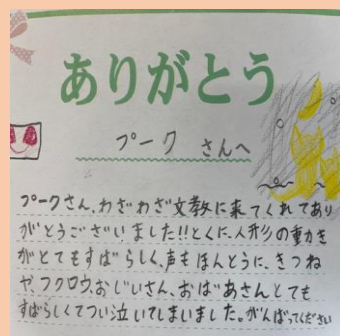 ありがとう
プーク さんへ
プークさん、わざわざ文教に来てくれてあり
がとうございました!!とくに、人形の動き
がとてもすばらしく、声もほんとうに、きつね
や、フクロウ、おじいさん、おばあさんとても
すばらしくてつい泣いてしまいました。がんばってください